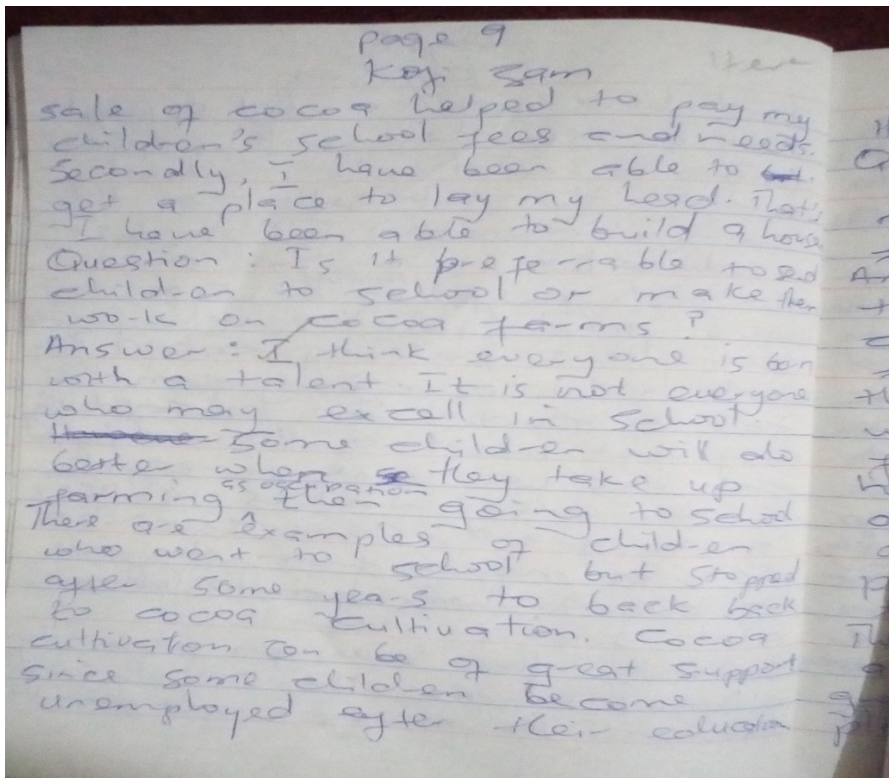 page 9
Kofi Sam
sale of cocoa helped to pay my
children's school fees and needs.
Secondly, I have been able to
get a place to lay my head. That's
I have been able to build a house
Question: Is it preferrable to send
children to school or make them
work on cocoa farms?
Answer: I think everyone is born
with a talent. It is not everyone
who may excell in school.
Some children will do
better when they take up
farming as occupation then going to school
There are examples of children
who went to school but stopped
after some years to back back
to cocoa cultivation. Cocoa
cultivation can be of great support
since some children become
unemployed after their education